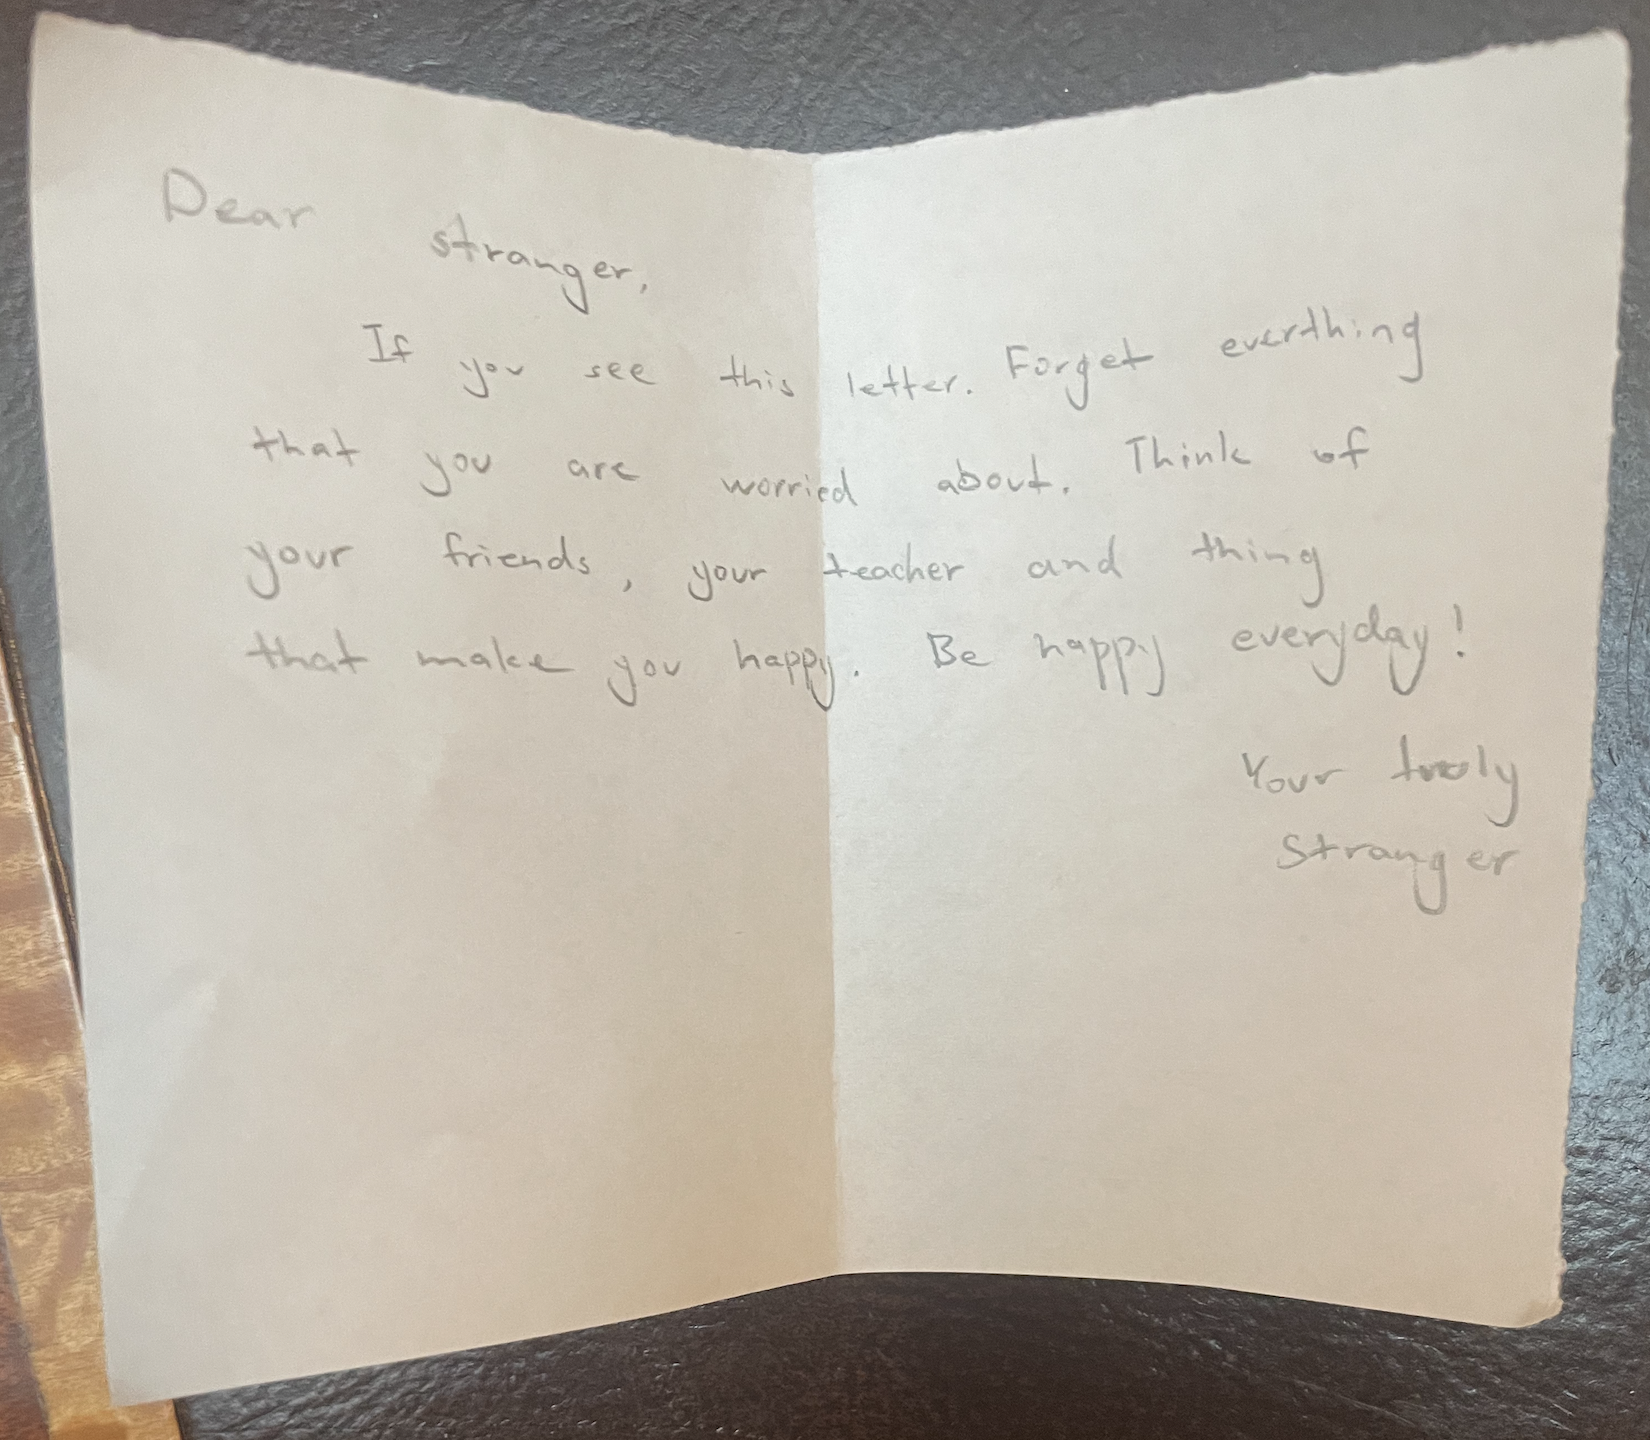 Dear stranger,
If you see this letter. Forget everthing
that you are worried about. Think of
your friends, your teacher and thing
that make you happy. Be happy everyday!
Your truly
Stranger